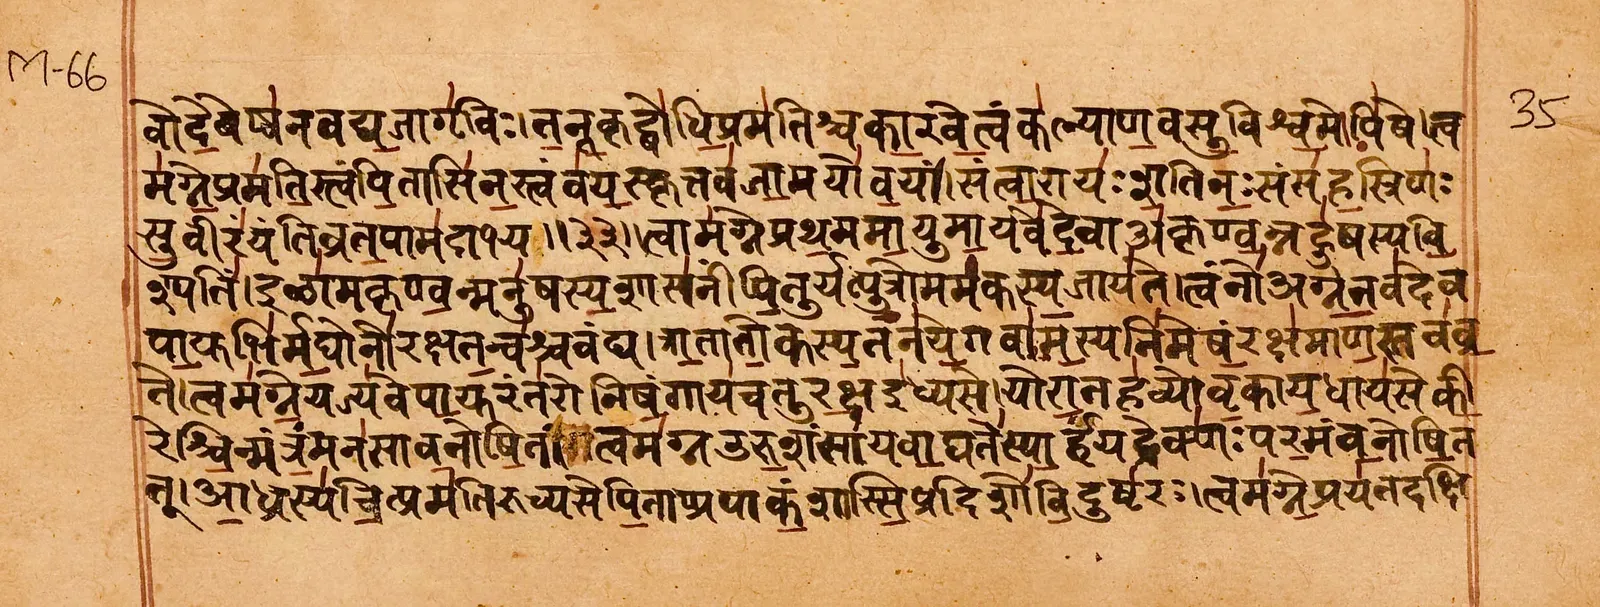 M-66
35
वोदे॒वेष्व॑नवद्य॒जागृ॑विः । त॒नू॒कृद्बो॑धि॒प्रम॑तिश्चका॒रवे॒त्वंक॑ल्याण॒वसु॒विश्व॒मोपि॑षे । त्व
म॑ग्ने॒प्रम॑ति॒स्त्वंपि॒तासि॑न॒स्त्वंव॑य॒स्कृत्तव॑जा॒मयो॑व॒यं । संत्वा॒रायः॑श॒तिनः॒संस॑ह॒स्रिणः॑
सु॒वीरं॑यंतिव्रत॒पाम॑दाभ्य ॥३३॥ त्वाम॑ग्नेप्रथ॒ममा॒युमा॒यवे॑दे॒वाअ॑कृण्व॒न्नहु॑षस्यवि॒
श्पतिं॑ । इळा॑मकृण्व॒न्मनु॑षस्य॒शास॑नींपि॒तुर्यत्पु॒त्रोमम॑कस्य॒जाय॑ते । त्वंनो॑अग्ने॒तव॑देव
पा॒युभि॑र्म॒घोनो॑रक्षत॒न्व॑श्चवंद्य । त्रा॒तातो॒कस्य॒तन॑ये॒गवा॑म॒स्यनि॑मेषं॒रक्ष॑माण॒स्तव॑व्र॒
ते । त्वम॑ग्ने॒यज्य॑वेपा॒युरंत॑रोनिषं॒गाय॑चतुर॒क्षइ॑ध्यसे । योरा॒तह॑व्योवृ॒काय॒धाय॑सेकी॒
रेश्चि॒न्मंत्रं॒मन॑साव॒नोषि॒तं । त्वम॑ग्नउरु॒शंसा॑यवा॒घते॑स्पा॒र्हंयद्रेक्णः॑पर॒मंव॒नोषि॒त
त् । आ॒ध्रस्य॑चि॒त्प्रम॑तिरुच्यसेपि॒ताप्रपाकं॒शास्सि॒प्रदिशो॑वि॒दुष्ट॑रः । त्वम॑ग्ने॒प्रय॑तदक्षि